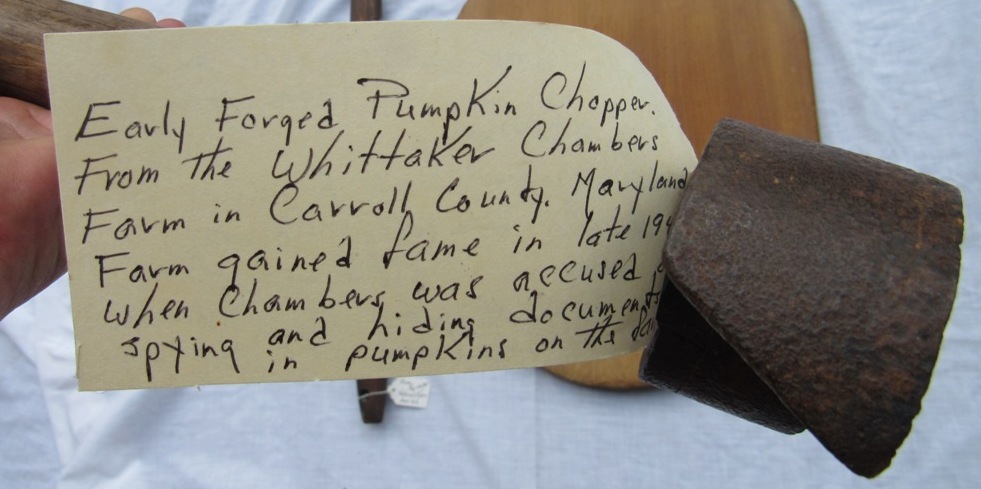 Early Forged Pumpkin Chopper.
From the Whittaker Chambers
Farm in Carroll County, Maryland
Farm gained fame in late 19
when Chambers was accused
spying and hiding documents
in pumpkins on the